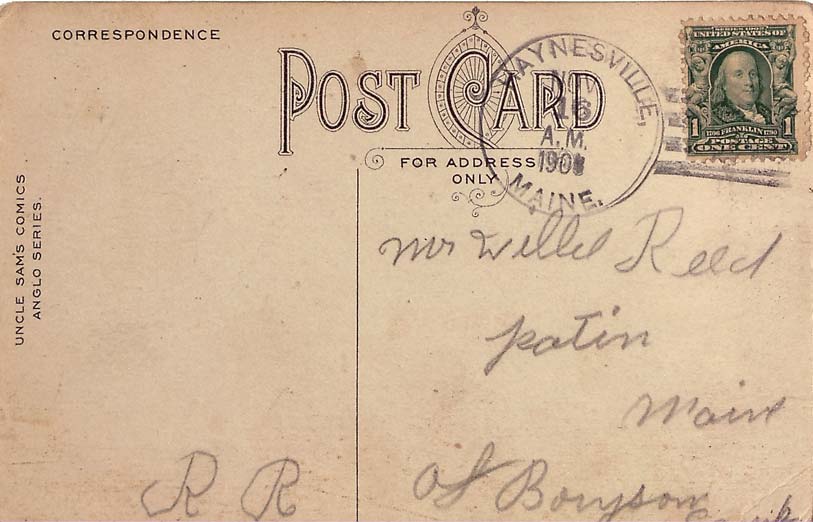 CORRESPONDENCE
POST CARD
FOR ADDRESS
ONLY
UNCLE SAM'S COMICS
ANGLO SERIES.
HAYNESVILLE,
NOV
16
A.M.
MAINE.
UNITED STATES OF
AMERICA
1 1706 FRANKLIN 1790 1
POSTAGE
ONE CENT
Mr Reed
patin
Maine
R R